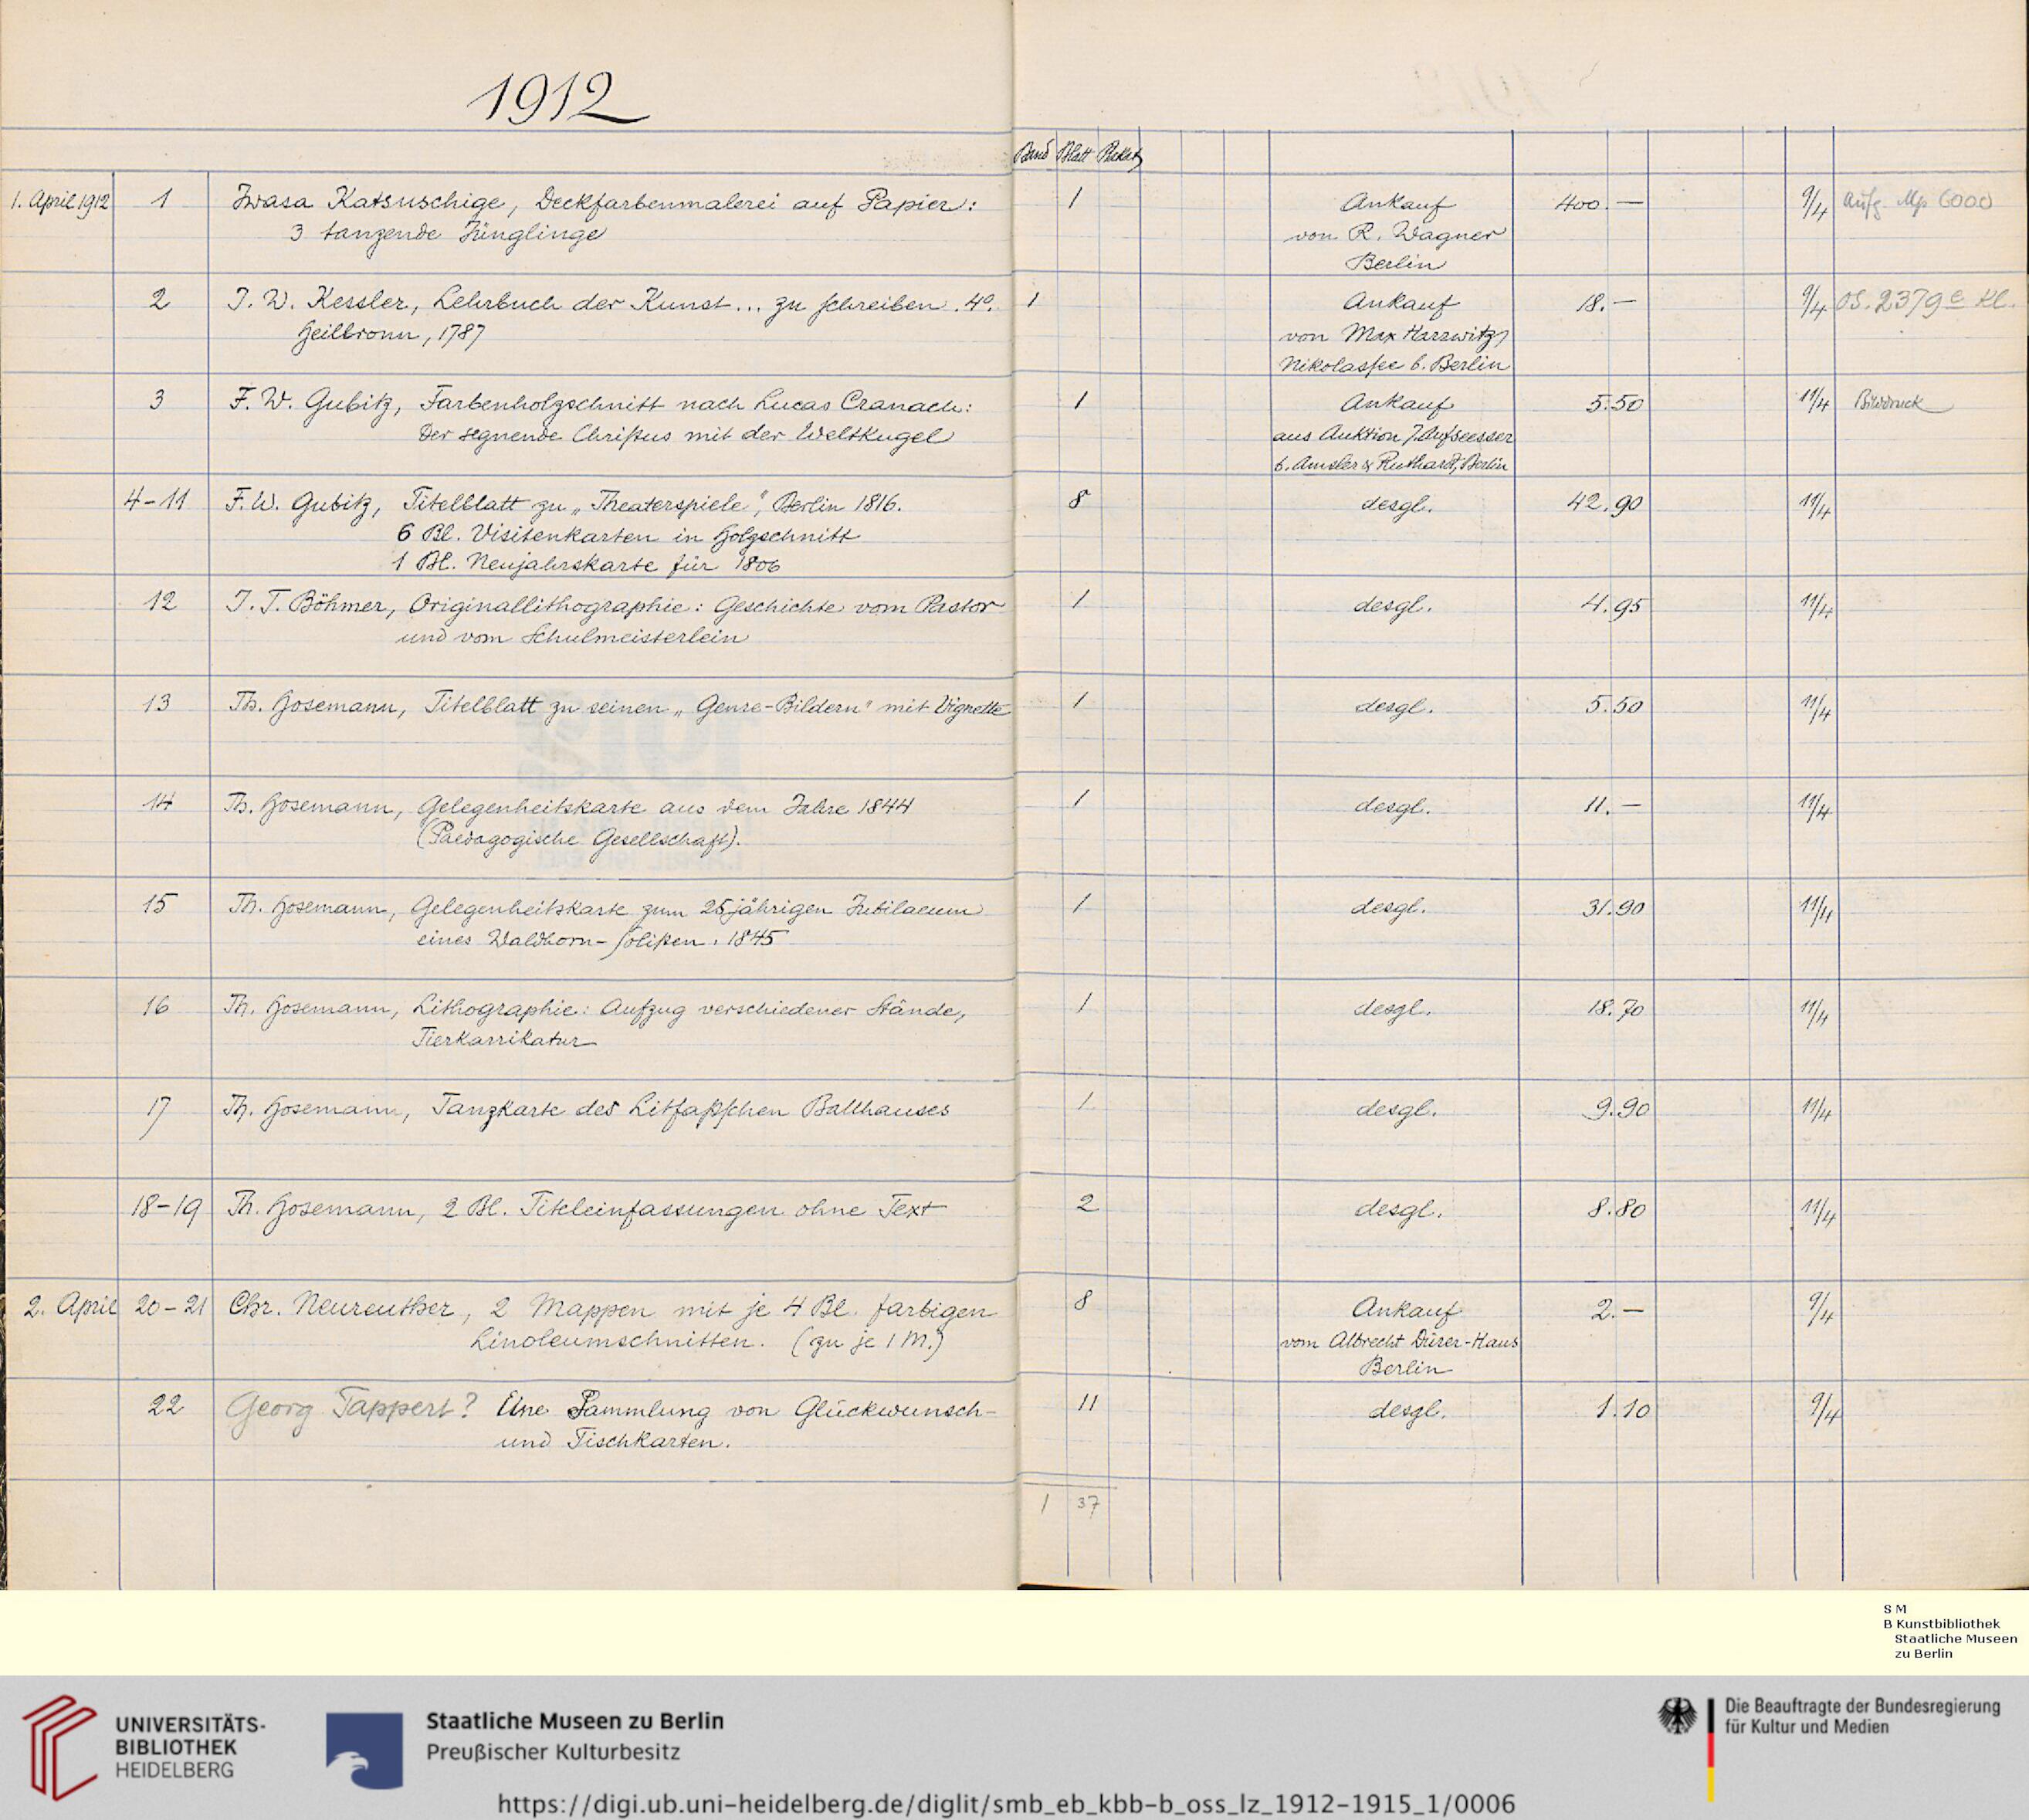 1912
Band Blatt Pakete
1. April 1912 1 Iwasa Katsuschige, Deckfarbenmalerei auf Papier: 1 Ankauf 400.— 9/4 Aufg. Mp 6000
3 tanzende Jünglinge von R. Wagner
Berlin
2 J. W. Kessler, Lehrbuch der Kunst... zu schreiben. 4°. 1 Ankauf 18.— 9/4 OS. 2379 e Kl.
Heilbronn, 1787 von Max Harrwitz
Nikolassee b. Berlin
3 F. W. Gubitz, Farbenholzschnitt nach Lucas Cranach: 1 Ankauf 5.50 11/4 Bilddruck
Der segnende Christus mit der Weltkugel aus Auktion J. Aufseesser
b. Amsler & Ruthardt, Berlin
4-11 F. W. Gubitz, Titelblatt zu „Theaterspiele“, Berlin 1816. 8 desgl. 42.90 11/4
6 Bl. Visitenkarten in Holzschnitt
1 Bl. Neujahrskarte für 1806
12 J. T. Böhmer, Originallithographie: Geschichte vom Pastor 1 desgl. 4.95 11/4
und vom Schulmeisterlein
13 Th. Hosemann, Titelblatt zu seinen „Genre-Bildern“ mit Vignette 1 desgl. 5.50 11/4
14 Th. Hosemann, Gelegenheitskarte aus dem Jahre 1844 1 desgl. 11.— 11/4
(Paedagogische Gesellschaft).
15 Th. Hosemann, Gelegenheitskarte zum 25jährigen Jubilaeum 1 desgl. 31.90 11/4
eines Waldhorn-Solisten. 1845
16 Th. Hosemann, Lithographie: Aufzug verschiedener Stände, 1 desgl. 18.70 11/4
Tierkarrikatur
17 Th. Hosemann, Tanzkarte des Litfaßschen Ballhauses 1 desgl. 9.90 11/4
18-19 Th. Hosemann, 2 Bl. Titeleinfassungen ohne Text 2 desgl. 8.80 11/4
2. April 20-21 Chr. Neureuther, 2 Mappen mit je 4 Bl. farbigen 8 Ankauf 2.— 9/4
Linoleumschnitten. (zu je 1 M.) vom Albrecht Dürer-Haus
Berlin
22 Georg Tappert? Eine Sammlung von Glückwunsch- 11 desgl. 1.10 9/4
und Tischkarten.
1 37
S M
B Kunstbibliothek
Staatliche Museen
zu Berlin
UNIVERSITÄTS-
BIBLIOTHEK
HEIDELBERG
Staatliche Museen zu Berlin
Preußischer Kulturbesitz
Die Beauftragte der Bundesregierung
für Kultur und Medien
https://digi.ub.uni-heidelberg.de/diglit/smb_eb_kbb-b_oss_lz_1912-1915_1/0006